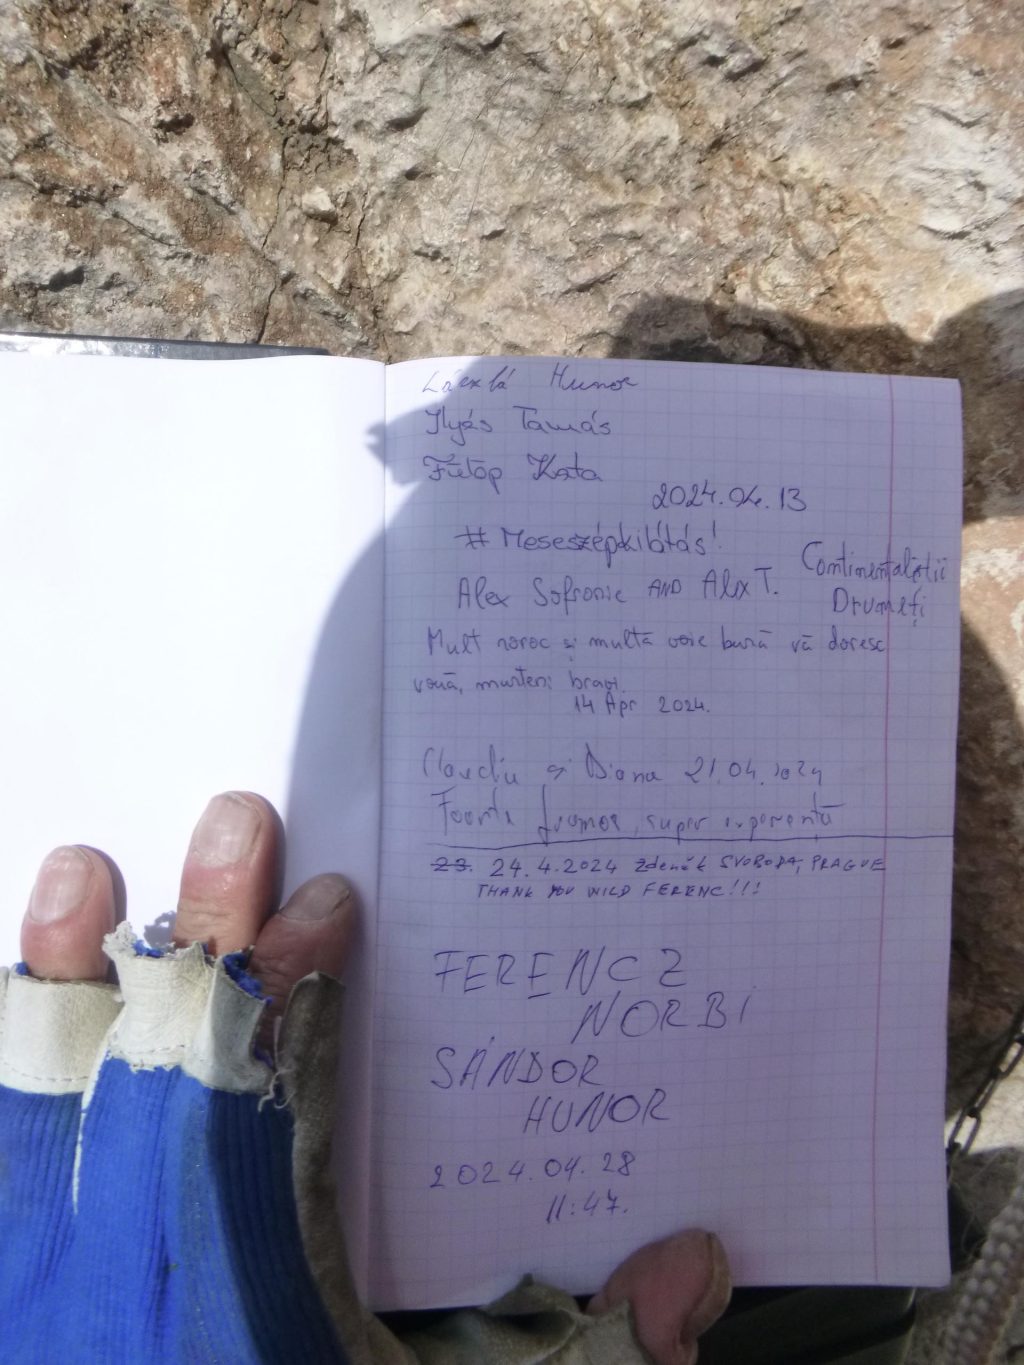 László Hunor
Ilyés Tamás
Fülöp Kata
2024.04.13
#Meseszépkilátás!
Alex Sofronie AND Alex T.
Continentaliștii
Drumeți
Mult noroc și multă voie bună vă doresc
vouă, munteni bravi.
14 Apr 2024.
Claudiu și Diana 21.04.2024
Foarte frumos, super experiență
23. 24.4.2024 Zdeněk SVOBODA, PRAGUE
THANK YOU WILD FERENC!!!
FERENCZ
NORBI
SÁNDOR
HUNOR
2024.04.28
11:47.